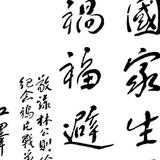 國家生
禍福避
敬錄林公則徐
紀念鴉片戰爭
江澤